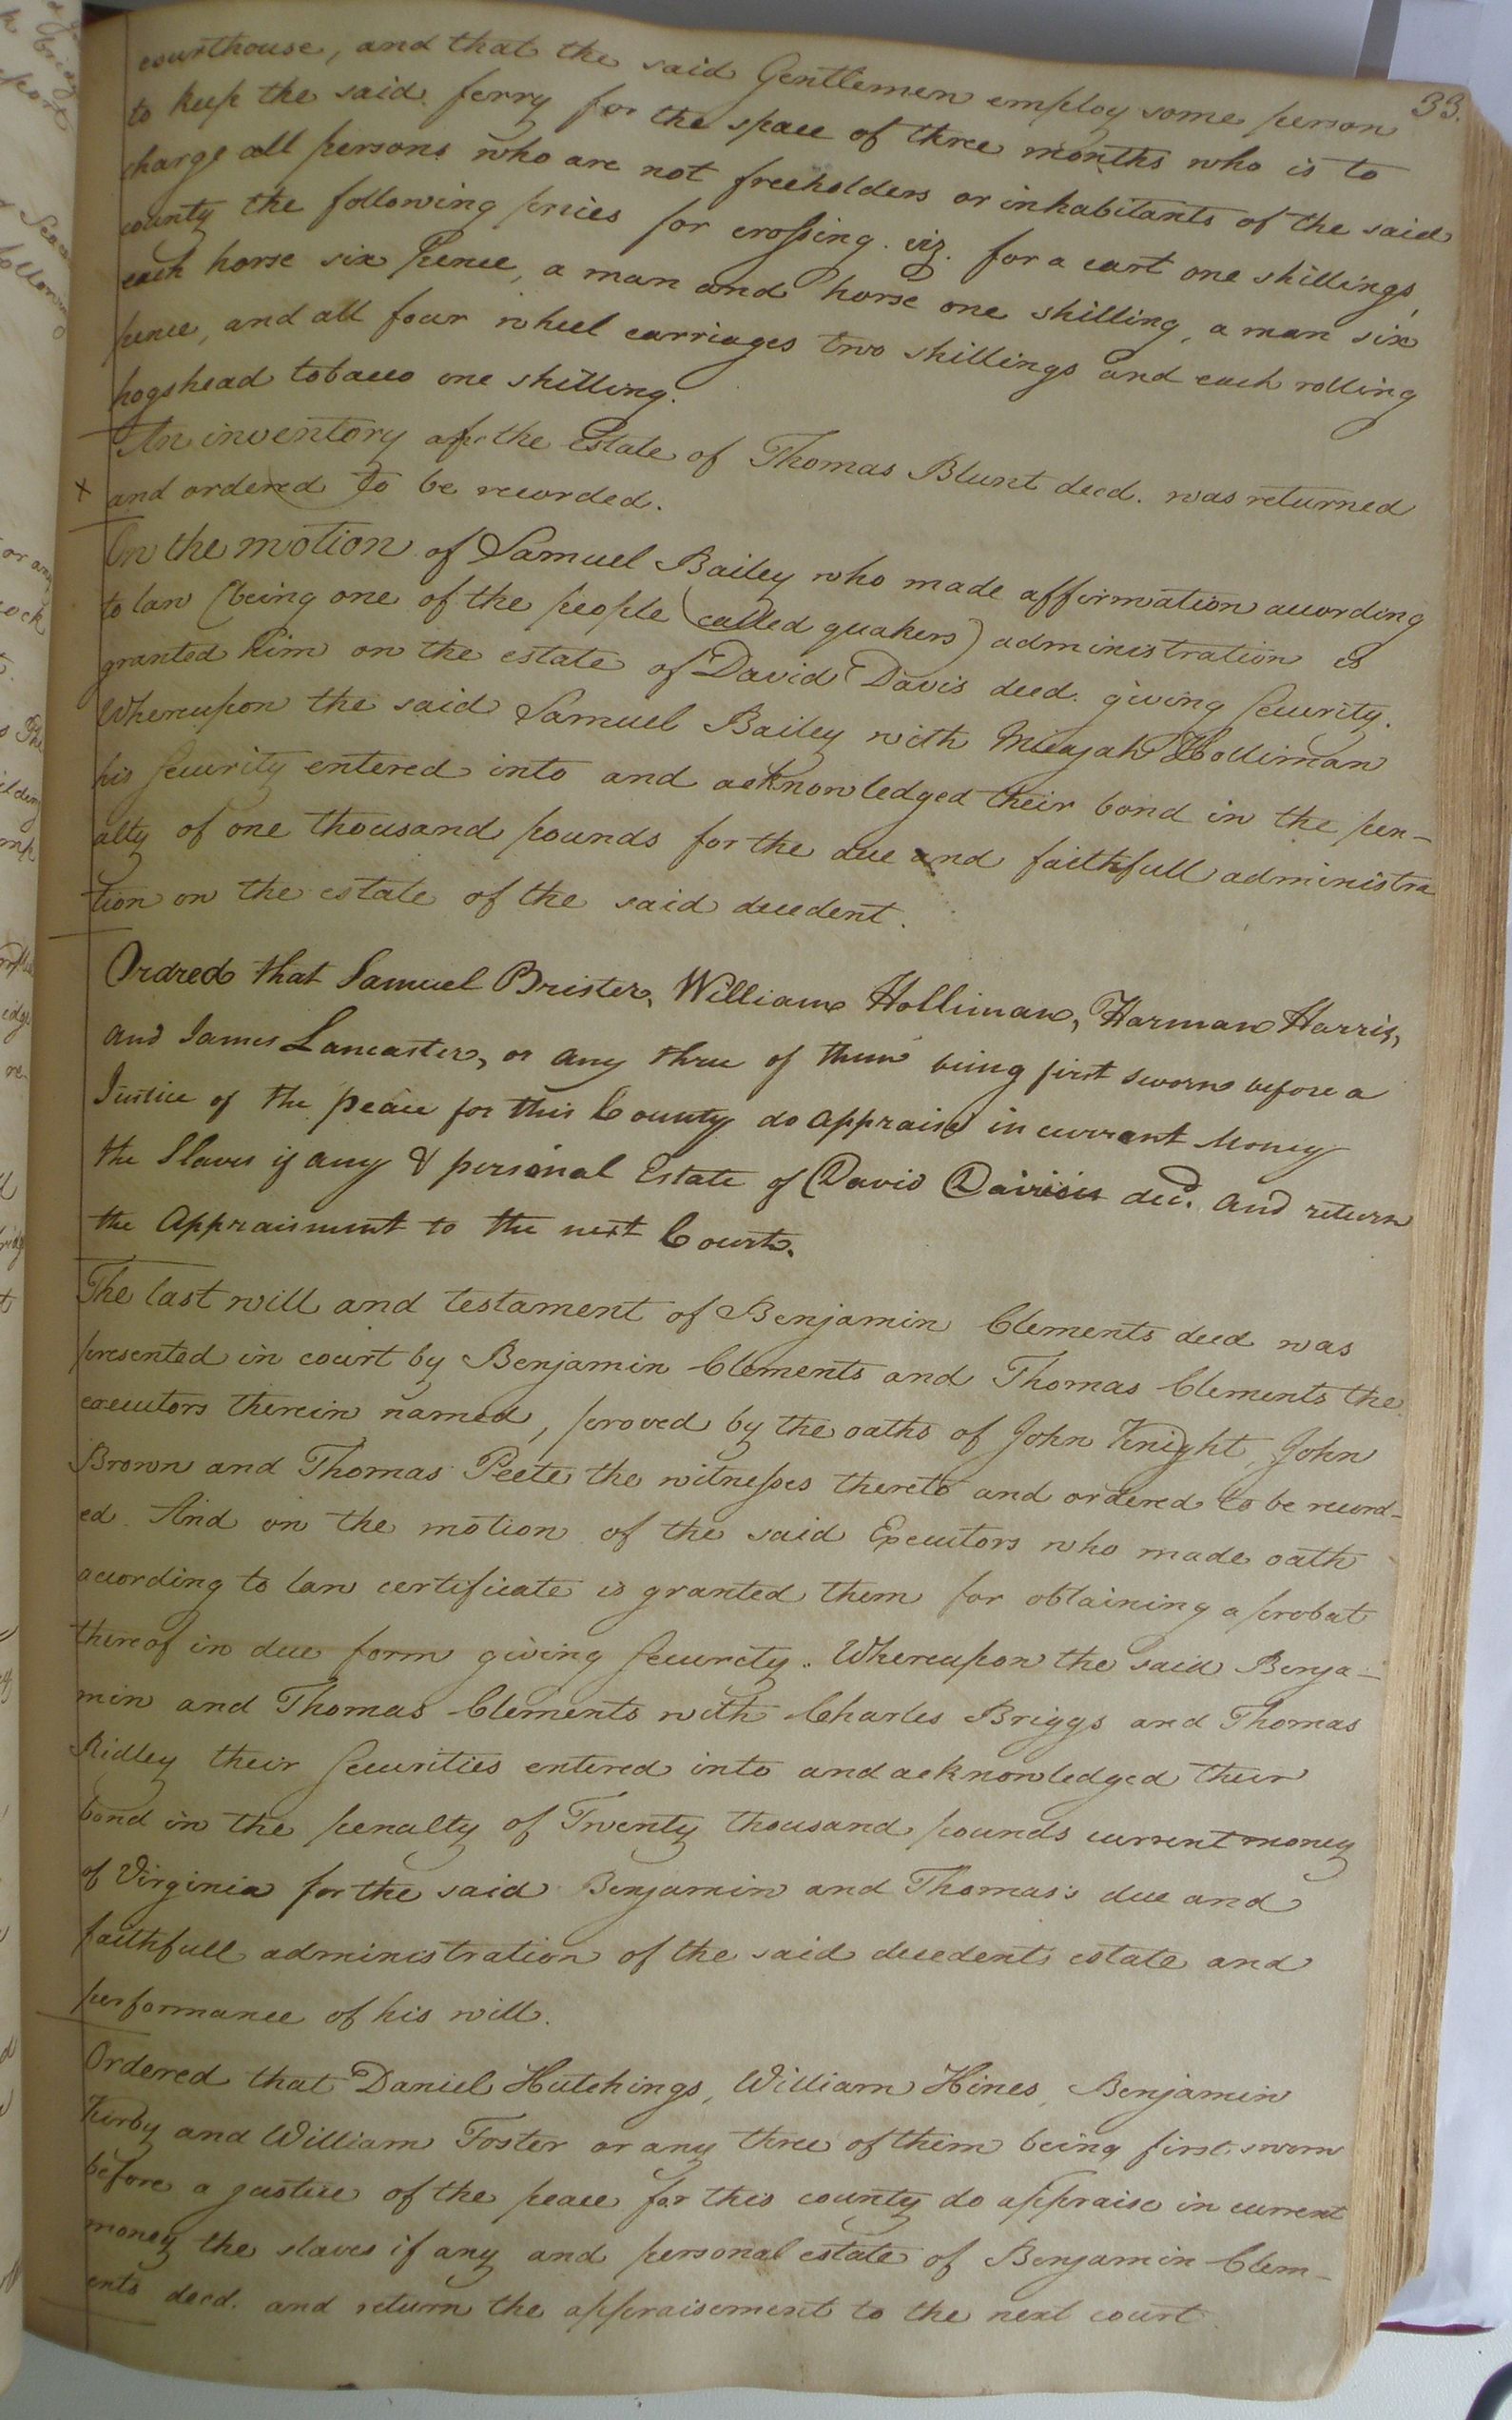 33.
courthouse, and that the said Gentlemen employ some person
to keep the said ferry for the space of three months who is to
charge all persons who are not freeholders or inhabitants of the said
county the following prices for crossing. viz. for a cart one shillings,
each horse six Pence, a man and horse one shilling, a man six
pence, and all four wheel carriages two shillings and each rolling
hogshead tobacco one shilling.
An inventory of the Estate of Thomas Blunt decd. was returned
x and ordered to be recorded.
On the motion of Samuel Bailey who made affirmation according
to law (being one of the people called quakers) administration is
granted him on the estate of David Davis decd. giving security.
Whereupon the said Samuel Bailey with Micajah Holliman
his security entered into and acknowledged their bond in the pen-
alty of one thousand pounds for the due and faithfull administra
tion on the estate of the said decedent.
Ordred that Samuel Brister, William Holliman, Harman Harris,
and James Lancaster, or any three of them being first sworn before a
Justice of the peace for this County do appraise in currant Money
the Slaves if any & personal Estate of David Davis decd. and return
the Appraisment to the next Court.
The last will and testament of Benjamin Clements decd was
presented in court by Benjamin Clements and Thomas Clements the
executors therein named, proved by the oaths of John Knight, John
Brown and Thomas Peete the witnesses thereto and ordered to be record-
ed. And on the motion of the said Executors who made oath
according to law certificate is granted them for obtaining a probat
thereof in due form giving security. Whereupon the said Benja-
min and Thomas Clements with Charles Briggs and Thomas
Ridley their securities entered into and acknowledged their
bond in the penalty of Twenty thousand pounds current money
of Virginia for the said Benjamin and Thomas's due and
faithfull administration of the said decedents estate and
performance of his will.
Ordered that Daniel Hutchings, William Hines, Benjamin
Kirby and William Foster or any three of them being first sworn
before a justice of the peace for this county do appraise in current
money the slaves if any and personal estate of Benjamin Clem-
ents decd. and return the appraisement to the next court